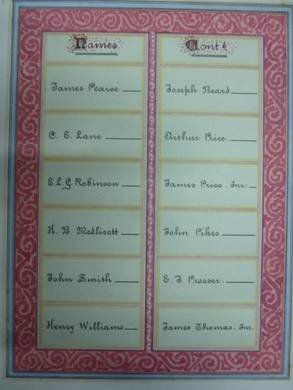 Names
James Pearce
C. E. Lane
E.L.G. Robinson
H. B. Medlicott
John Smith
Henry Williams
Cont.d
Joseph Beard
Arthur Price
James Price. Jnr.
John Pikes
E. J. Prosser.
James Thomas. Jnr.